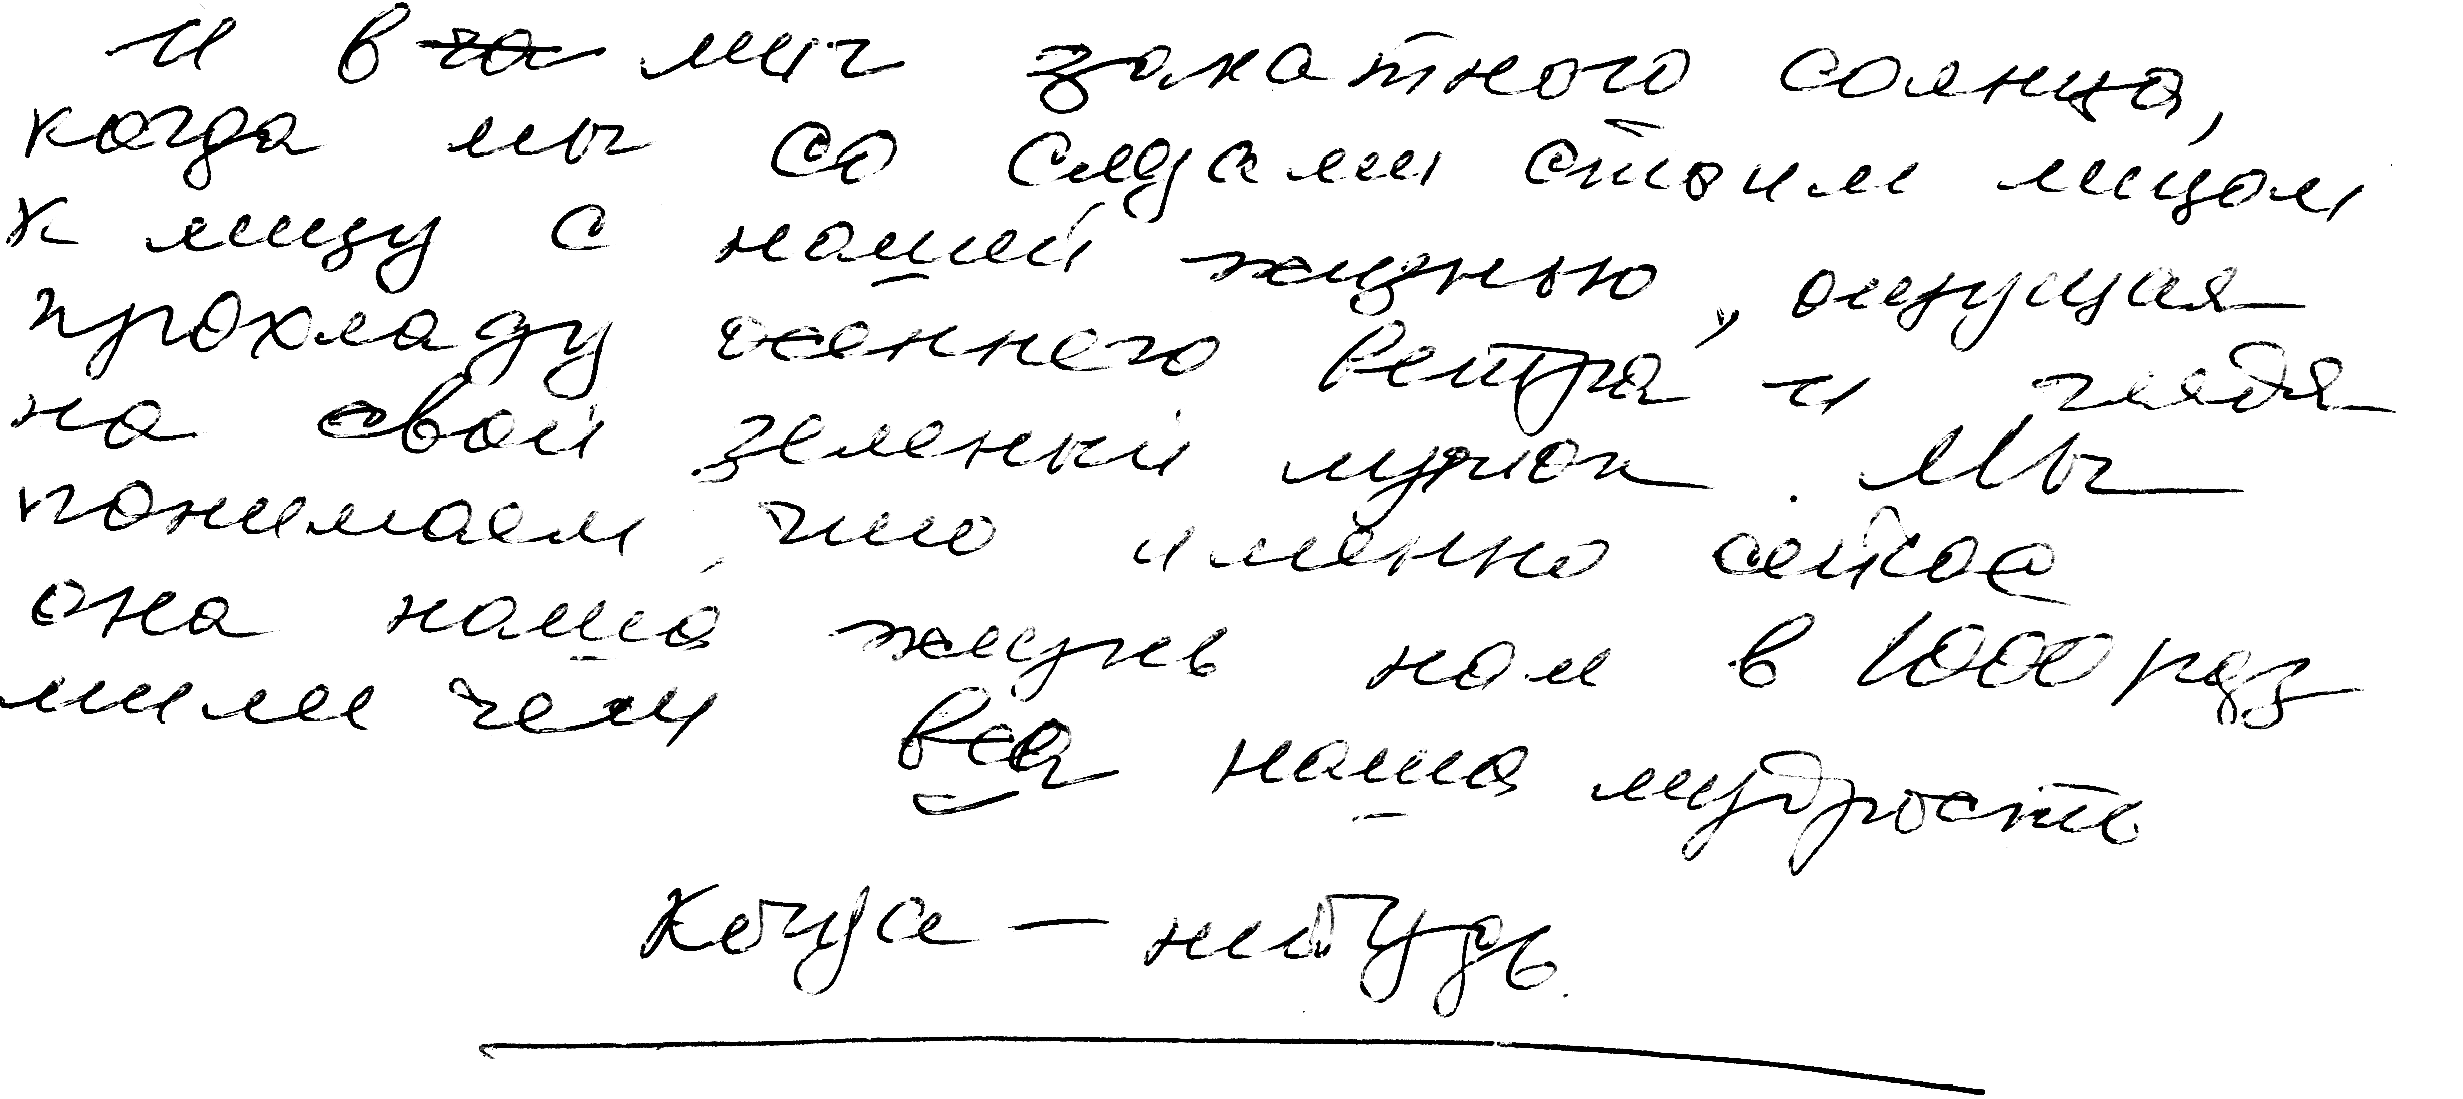 и в миг закатного солнца,
когда мы со слезами стоим лицом
к лицу с нашей жизнью, ощущая
прохладу осеннего ветра и глядя
на свой зеленый лужок. Мы
понимаем, что именно сейчас
она наша жизнь нам в 1000 раз
мили чем вся наша мудрость
когда-нибудь.